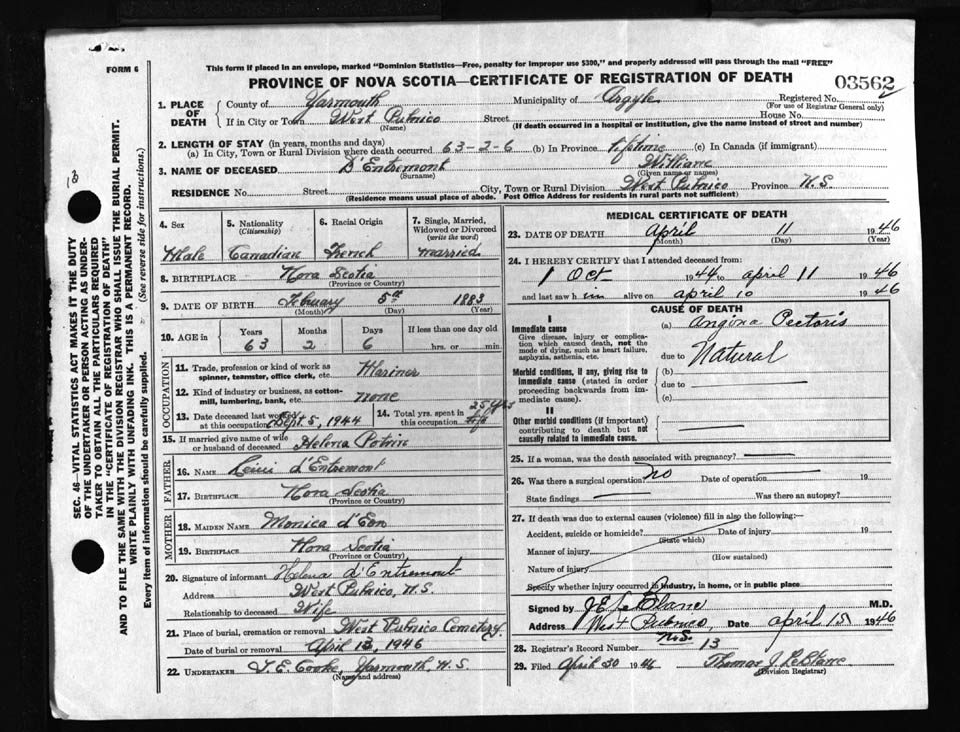 This form if placed in an envelope, marked "Dominion Statistics—Free, penalty for improper use $300," and properly addressed will pass through the mail "FREE"
FORM 6
PROVINCE OF NOVA SCOTIA—CERTIFICATE OF REGISTRATION OF DEATH
03562
1. PLACE OF DEATH
County of Yarmouth Municipality of Argyle Registered No.
(For use of Registrar General only)
If in City or Town West Pubnico Street House No.
(Name) (If death occurred in a hospital or institution, give the name instead of street and number)
2. LENGTH OF STAY (in years, months and days)
(a) In City, Town or Rural Division where death occurred 63-2-6 (b) In Province lifetime (c) In Canada (if immigrant)
3. NAME OF DECEASED D'Entremont William
(Surname) (Given name or names)
RESIDENCE No. Street City, Town or Rural Division West Pubnico Province N.S.
(Residence means usual place of abode. Post Office Address for residents in rural parts not sufficient)
4. Sex 5. Nationality (Citizenship) 6. Racial Origin 7. Single, Married, Widowed or Divorced (write the word)
Male Canadian French married
8. BIRTHPLACE Nova Scotia
(Province or Country)
9. DATE OF BIRTH February 5th 1883
(Month) (Day) (Year)
10. AGE in Years Months Days If less than one day old
63 2 6 hrs. or min.
OCCUPATION
11. Trade, profession or kind of work as spinner, teamster, office clerk, etc. Mariner
12. Kind of industry or business, as cotton-mill, lumbering, bank, etc. none
13. Date deceased last worked at this occupation Sept. 5, 1944
14. Total yrs. spent in this occupation 25 yrs
15. If married give name of wife or husband of deceased Helena Potvin
FATHER
16. NAME d'Entremont
17. BIRTHPLACE Nova Scotia
(Province or Country)
MOTHER
18. MAIDEN NAME Monica d'Eon
19. BIRTHPLACE Nova Scotia
(Province or Country)
20. Signature of informant Helena d'Entremont
Address West Pubnico, N.S.
Relationship to deceased Wife
21. Place of burial, cremation or removal West Pubnico Cemetery
Date of burial or removal April 13, 1946
22. UNDERTAKER Cooke, Yarmouth, N.S.
(Name and address)
MEDICAL CERTIFICATE OF DEATH
23. DATE OF DEATH April 11 1946
(Month) (Day) (Year)
24. I HEREBY CERTIFY that I attended deceased from:
1 Oct 1944 to april 11 1946
and last saw him alive on april 10 1946
CAUSE OF DEATH
I
Immediate cause (a) Angina Pectoris
Give disease, injury or complication which caused death, not the mode of dying, such as heart failure, asphyxia, asthenia, etc.
due to Natural
Morbid conditions, if any, giving rise to immediate cause (stated in order proceeding backwards from immediate cause).
(b)
due to
(c)
II
Other morbid conditions (if important) contributing to death but not causally related to immediate cause.
25. If a woman, was the death associated with pregnancy?
26. Was there a surgical operation? no Date of operation 19
State findings Was there an autopsy?
27. If death was due to external causes (violence) fill in also the following:—
Accident, suicide or homicide? Date of injury 19
(State which)
Manner of injury
(How sustained)
Nature of injury
Specify whether injury occurred in industry, in home, or in public place
Signed by J E LeBlanc M.D.
Address West Pubnico, N.S. Date april 15 1946
28. Registrar's Record Number 13
29. Filed April 30 1946 Thomas J. LeBlanc
(Division Registrar)
SEC. 46—VITAL STATISTICS ACT MAKES IT THE DUTY
OF THE UNDERTAKER OR PERSON ACTING AS UNDER-
TAKER TO OBTAIN ALL THE PARTICULARS REQUIRED
IN THE "CERTIFICATE OF REGISTRATION OF DEATH"
AND TO FILE THE SAME WITH THE DIVISION REGISTRAR WHO SHALL ISSUE THE BURIAL PERMIT.
WRITE PLAINLY WITH UNFADING INK. THIS IS A PERMANENT RECORD.
Every item of information should be carefully supplied. (See reverse side for instructions.)